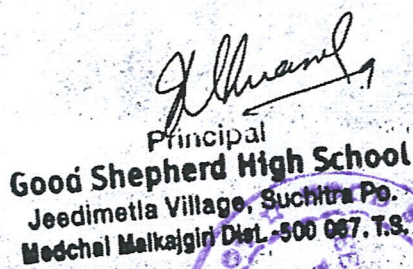 Principal
Good Shepherd High School
Jeedimetla Village, Suchitra Po.
Medchal Malkajgiri Dist.-500 067. T.S.